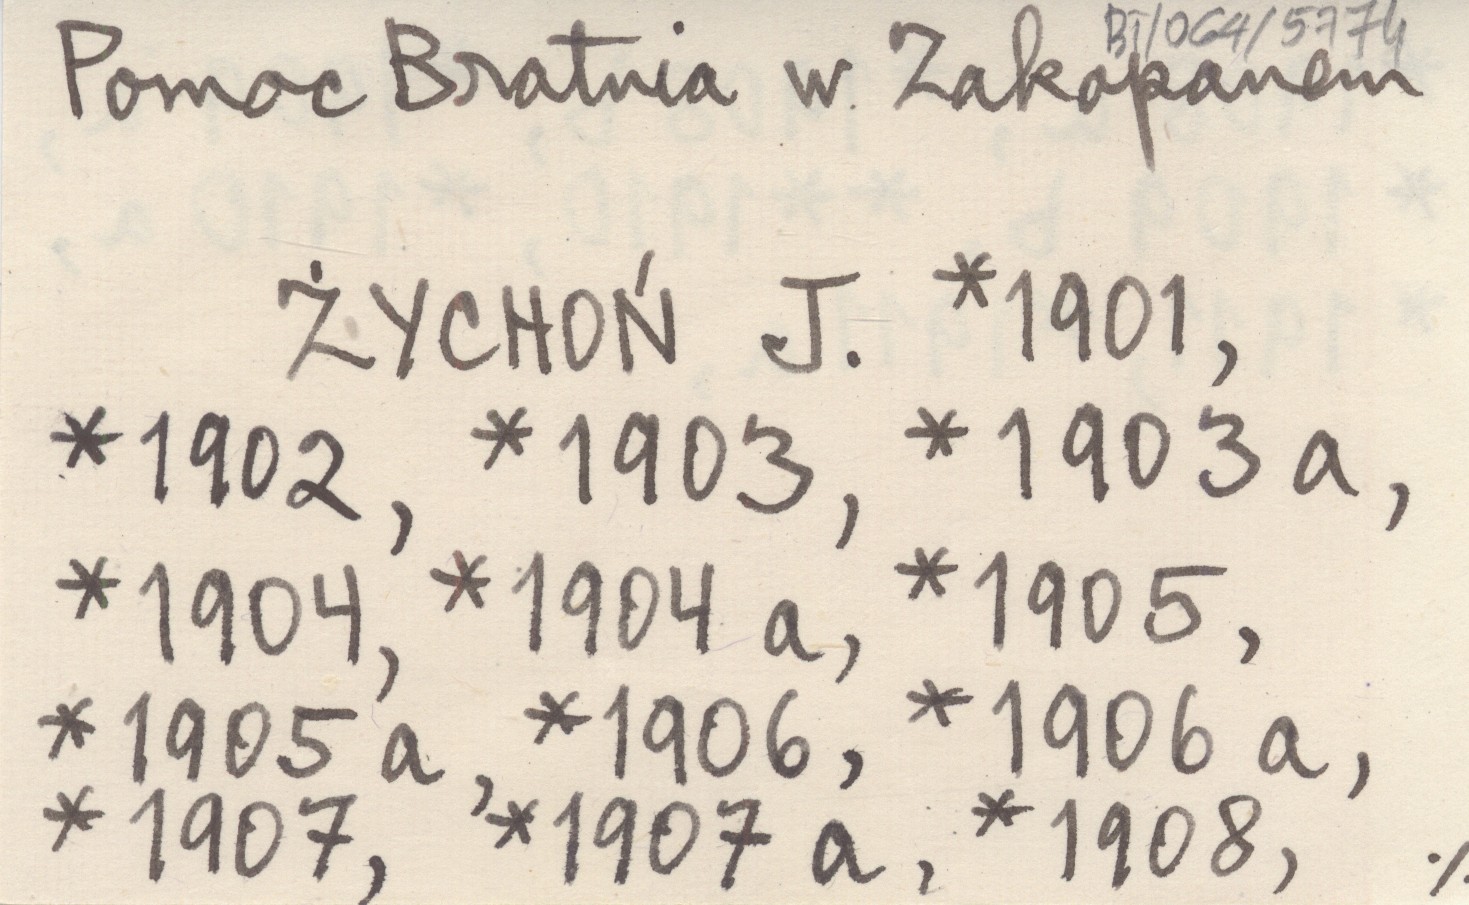 BI/064/5774
Pomoc Bratnia w Zakopanem
ŻYCHOŃ J. *1901,
*1902, *1903, *1903 a,
*1904, *1904 a, *1905,
*1905 a, *1906, *1906 a,
*1907, *1907 a, *1908, ./.